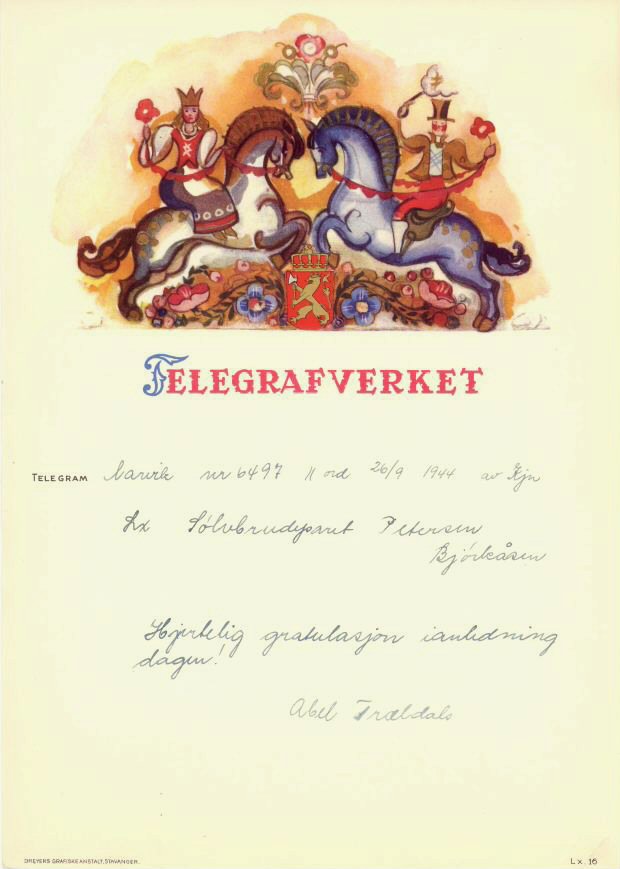 TELEGRAFVERKET
TELEGRAM Narvik nr 6497 11 ord 26/9 1944 av Kjn
Lx Sølvbrudeparet Petersen
Bjørkåsen
Hjertelig gratulasjon ianledning
dagen!
Abel Trældals
DREYERS GRAFISKE ANSTALT, STAVANGER.
Lx. 16